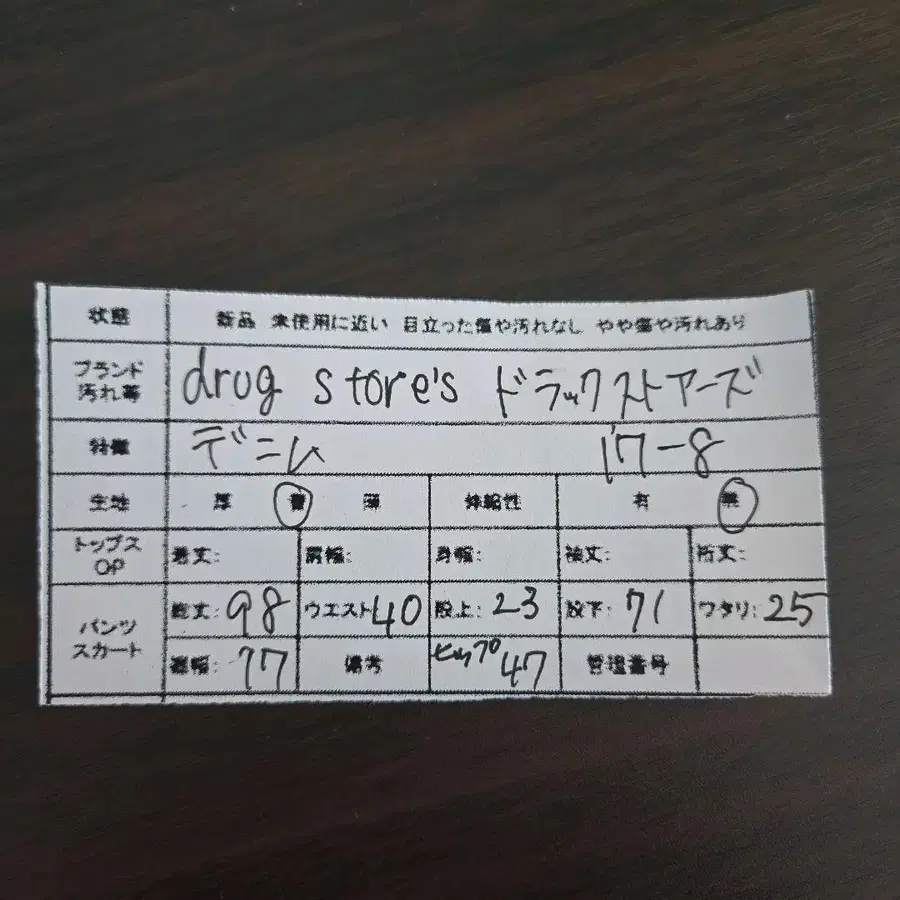 状態 新品 未使用に近い 目立った傷や汚れなし やや傷や汚れあり
ブランド
汚れ等 drug store's ドラックストアーズ
特徴 デニム 17-8
生地 厚 普 薄 伸縮性 有 無
トップス
OP 着丈: 肩幅: 身幅: 袖丈: 裄丈:
パンツ
スカート 総丈: 98 ウエスト 40 股上: 23 股下: 71 ワタリ: 25
裾幅: 17 備考 ヒップ 47 管理番号